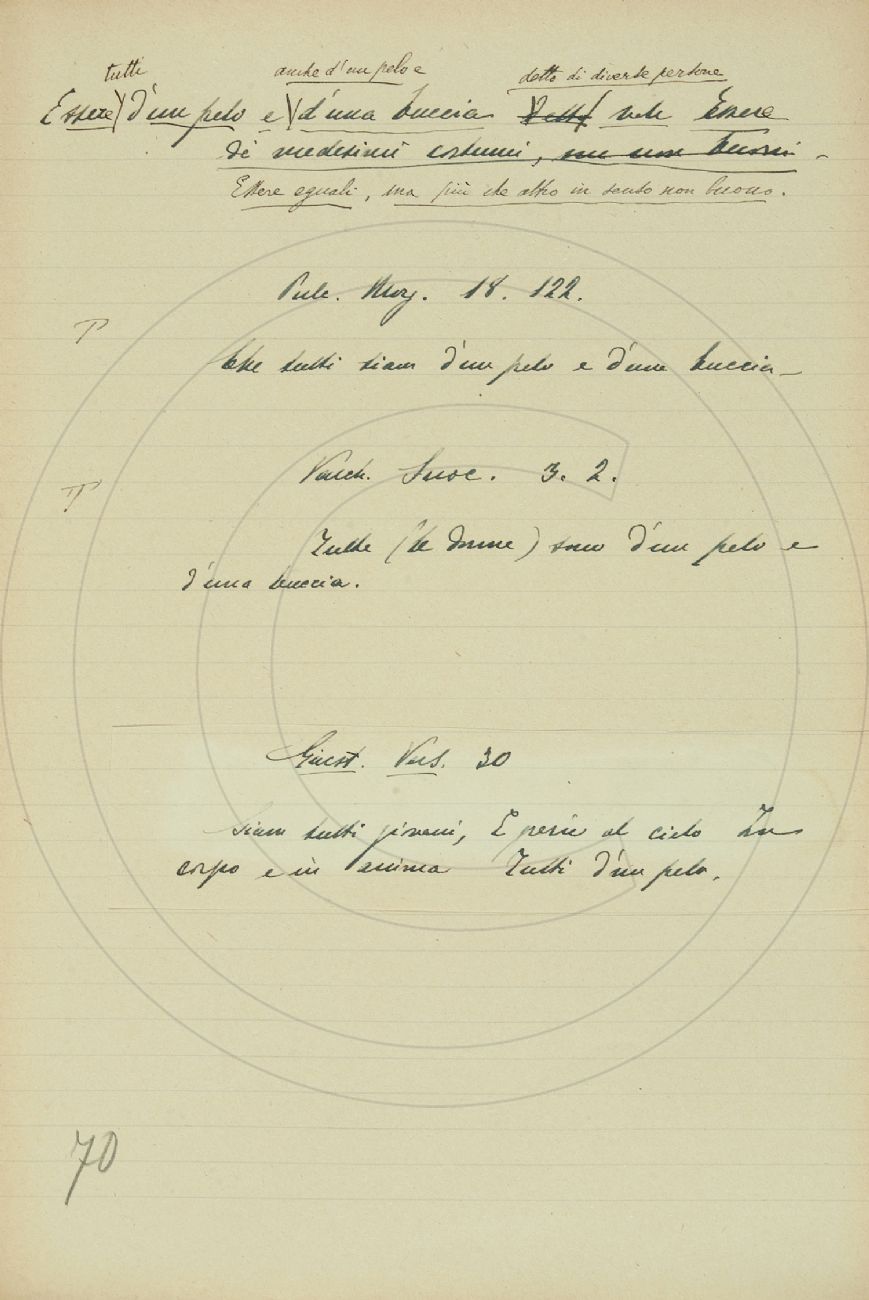 tutti anche d'un pelo e detto di diverse persone
Essere d'un pelo e d'una buccia Detto vale Essere
di medesimi costumi, ma non buoni.
Essere eguali, ma più che altro in senso non buono.
Pulc. Morg. 18. 122.
Che tutti siam d'un pelo e d'una buccia.
Varch. Suoc. 3. 2.
Tutte (le donne) sono d'un pelo e
d'una buccia.
Giust. Vers. 30
Siam tutti giovani, E per al cielo In
corpo e in anima Tutti d'un pelo.
70